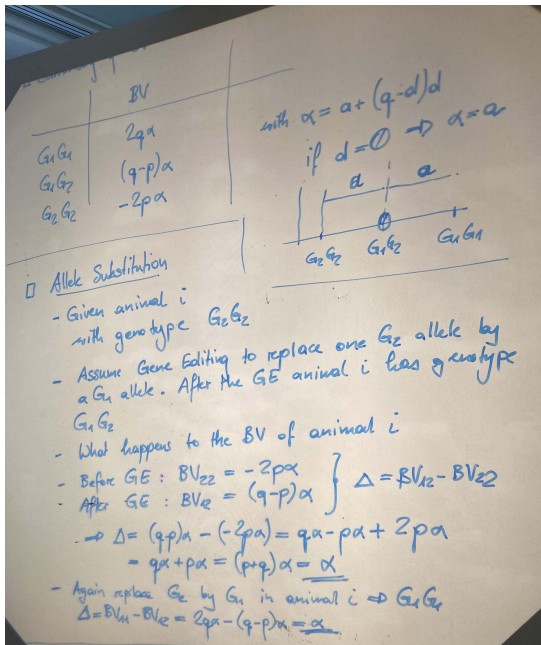 BV
G₁G₁ 2qα
G₁G₂ (q-p)α
G₂G₂ -2pα
with α = a + (q-d)d
if d=0 ⇒ α=a
a a
G₂G₂ G₁G₂ G₁G₁
□ Allele Substitution
- Given animal i
with genotype G₂G₂
- Assume Gene Editing to replace one G₂ allele by
a G₁ allele. After the GE animal i has genotype
G₁G₂
- What happens to the BV of animal i
- Before GE : BV₂₂ = -2pα
- After GE : BV₁₂ = (q-p)α } Δ = BV₁₂ - BV₂₂
⇒ Δ = (q-p)α - (-2pα) = qα - pα + 2pα
= qα + pα = (p+q)α = α
- Again replace G₂ by G₁ in animal i ⇒ G₁G₁
Δ = BV₁₁ - BV₁₂ = 2qα - (q-p)α = α